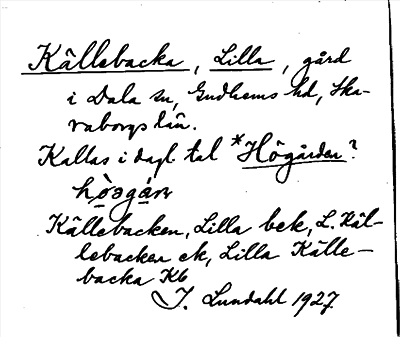 Källebacka, Lilla, gård
i Dala sn, Gudhems hd, Ska-
raborgs län.
Kallas i dagl. tal *Högården?
Källebacken, Lilla bek, L. Käl-
lebacken ek, Lilla Källe-
backa Kb
J. Lundahl 1927.